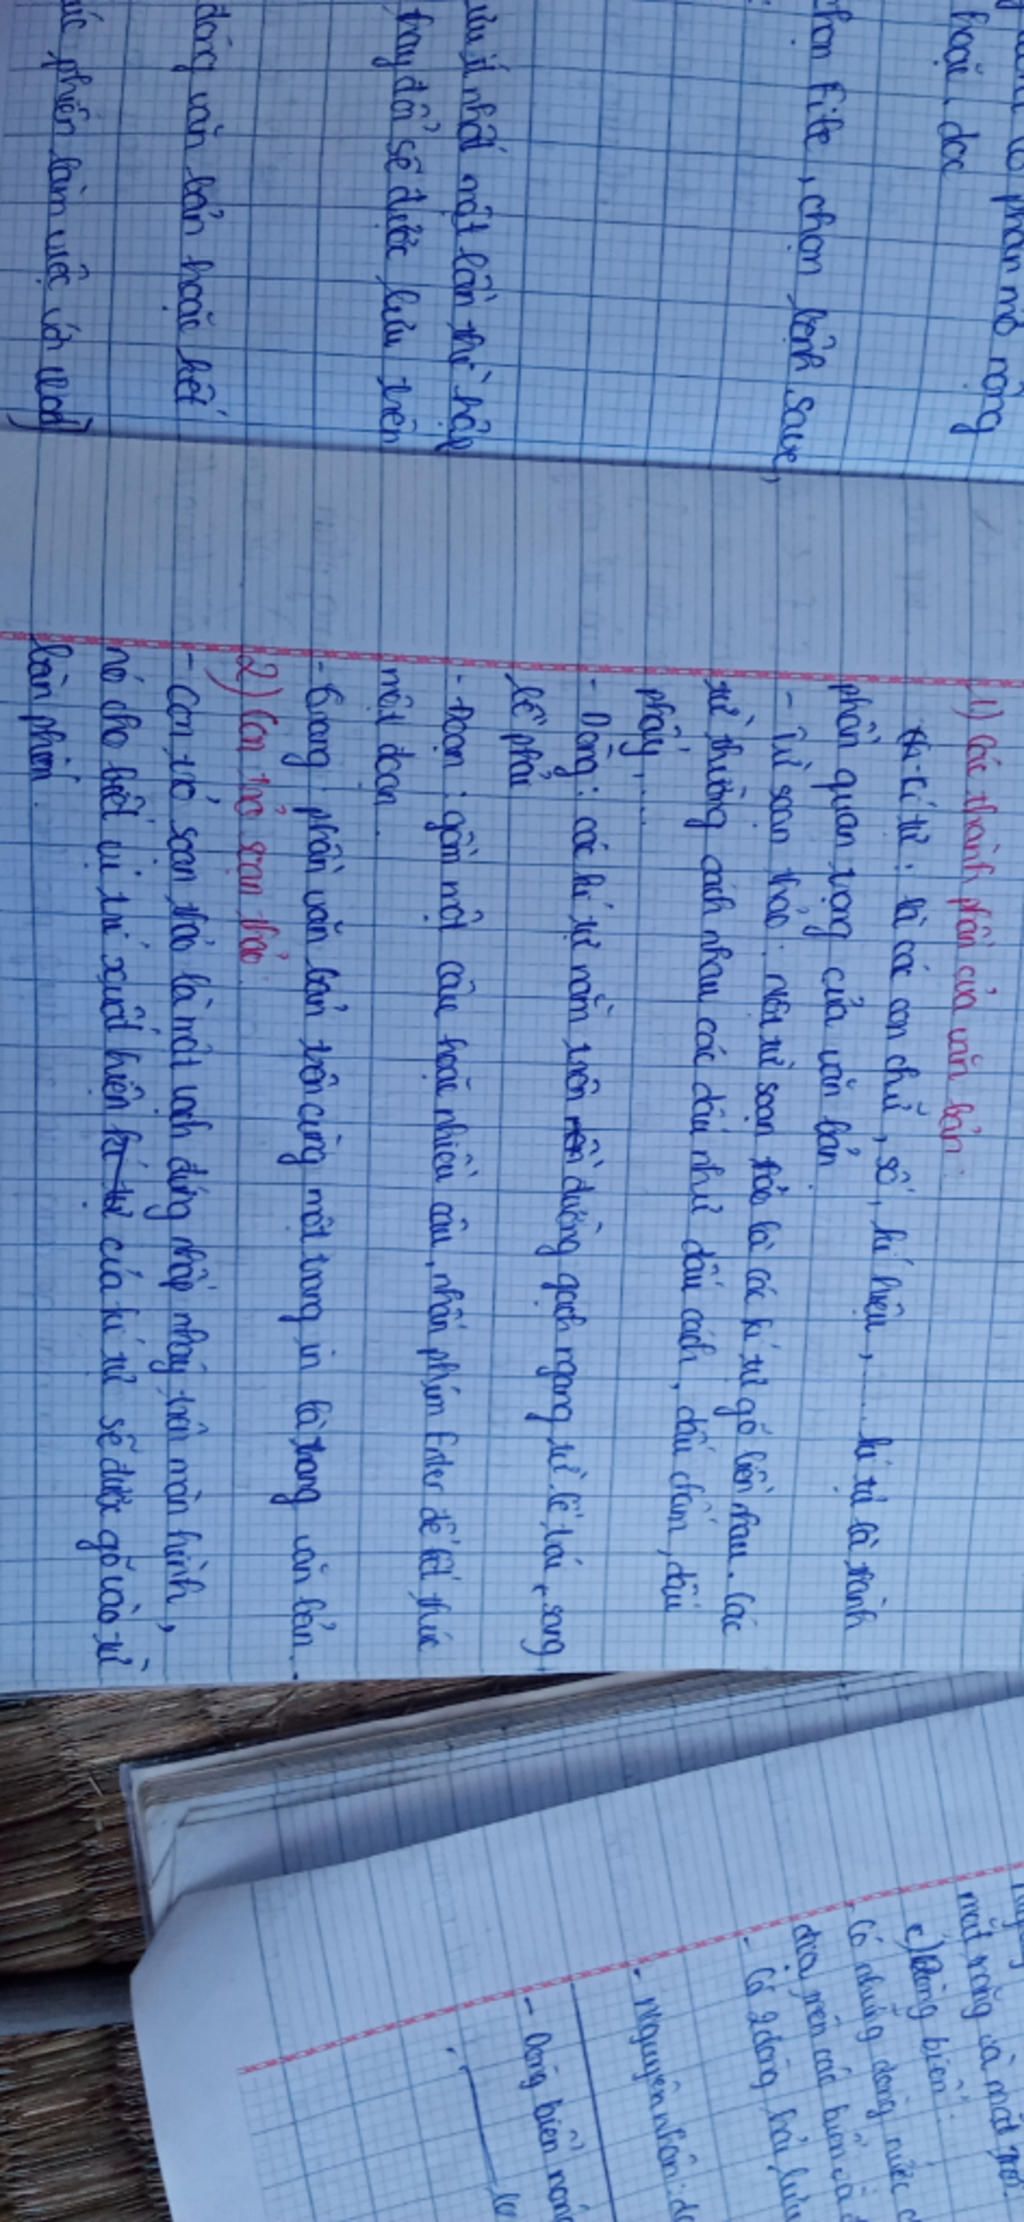 phần mở rộng
hoặc .doc
chọn File, chọn lệnh Save,
lưu ít nhất một lần thì hộp
thay đổi sẽ được lưu trên
đóng văn bản hoặc kết
phiên làm việc với Word]
1) Các thành phần của văn bản:
- Kí tự: là các con chữ, số, kí hiệu,..... kí tự là thành
phần quan trọng của văn bản
- Từ soạn thảo: Một từ soạn thảo là các kí tự gõ liền nhau. Các
từ thường cách nhau các dấu như dấu cách, dấu chấm, dấu
phẩy,....
- Dòng: các kí tự nằm trên đường gạch ngang từ lề trái sang
lề phải
- Đoạn: gồm một câu hoặc nhiều câu, nhấn phím Enter để kết thúc
một đoạn.
- Trang: phần văn bản trên cùng một trang in là trang văn bản.
2) Con trỏ soạn thảo
- Con trỏ soạn thảo là một vạch đứng nhấp nháy trên màn hình,
nó cho biết vị trí xuất hiện kí tự của kí tự sẽ được gõ vào từ
bàn phím.
mặt trăng và mặt trời.
c) Dòng biển:
Có những dòng nước
địa, trên các biển và đ
- Có 2 dòng hải lưu
- Nguyên nhân: do
- Dòng biển nóng